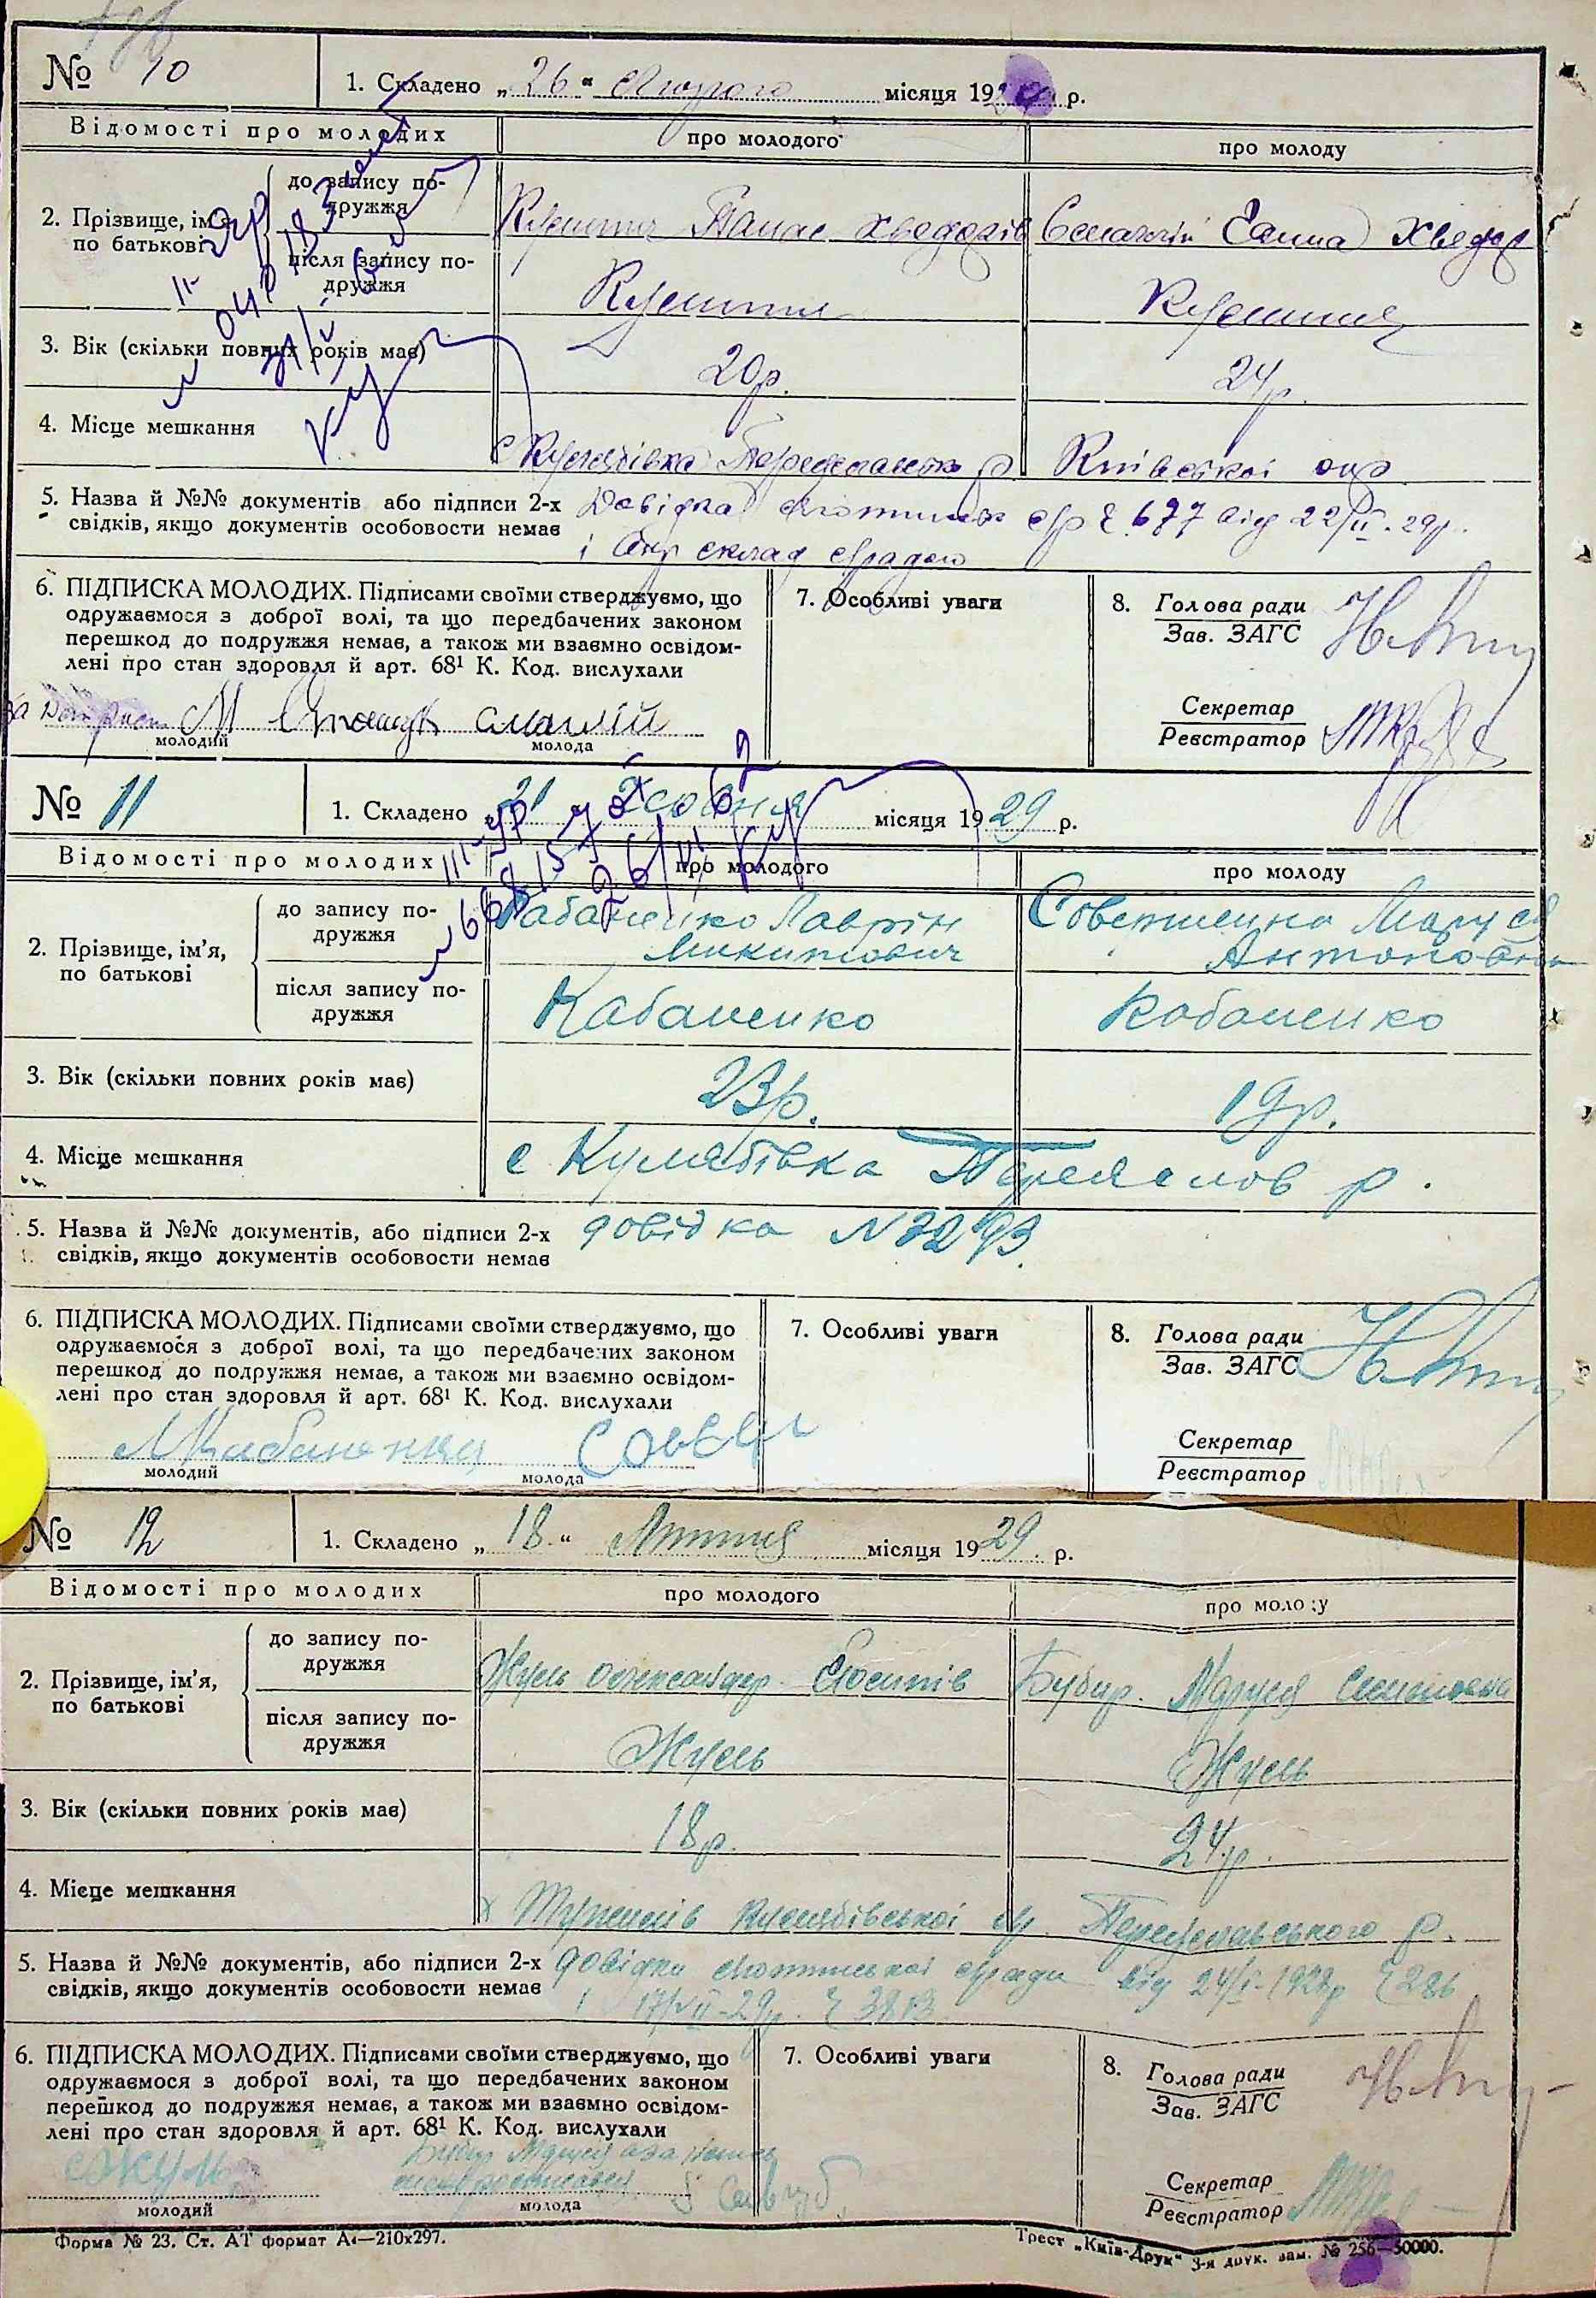 № 10
1. Складено „26“ Лютого місяця 19 р.
Відомості про молодих
про молодого
про молоду
2. Прізвище, ім'я
по батькові
до запису по-
дружжя
Панас Хведорів
Ганна Хведор
після запису по-
дружжя
3. Вік (скільки повних років має)
20р.
24р.
4. Місце мешкання
с Кулябівка р. Київської окр
5. Назва й №№ документів або підписи 2-х
свідків, якщо документів особовости немає
Довідка с/р № 677 від 22/II-29р.
і
6. ПІДПИСКА МОЛОДИХ. Підписами своїми стверджуємо, що
одружаємося з доброї волі, та що передбачених законом
перешкод до подружжя немає, а також ми взаємно освідом-
лені про стан здоровля й арт. 68¹ К. Код. вислухали
7. Особливі уваги
8. Голова ради
Зав. ЗАГС
Секретар
Реєстратор
молодий
молода
№ 11
1. Складено 21 Жовтня місяця 1929 р.
Відомості про молодих
про молодого
про молоду
2. Прізвище, ім'я,
по батькові
до запису по-
дружжя
Кабаненко Лаврін
Микитович
Маруся
Антоновна
після запису по-
дружжя
Кабаненко
Кабаненко
3. Вік (скільки повних років має)
23р.
19р.
4. Місце мешкання
с Кулябівка Переяслов р.
5. Назва й №№ документів, або підписи 2-х
свідків, якщо документів особовости немає
довідка N 3293.
6. ПІДПИСКА МОЛОДИХ. Підписами своїми стверджуємо, що
одружаємося з доброї волі, та що передбачених законом
перешкод до подружжя немає, а також ми взаємно освідом-
лені про стан здоровля й арт. 68¹ К. Код. вислухали
7. Особливі уваги
8. Голова ради
Зав. ЗАГС
Секретар
Реєстратор
молодий
молода
№ 12
1. Складено „18“ місяця 1929 р.
Відомості про молодих
про молодого
про молоду
2. Прізвище, ім'я,
по батькові
до запису по-
дружжя
Жуль Олександр
Бубир Маруся
після запису по-
дружжя
Жуль
Жуль
3. Вік (скільки повних років має)
18р.
24р.
4. Місце мешкання
х Кулябівської с/р. Переяславського р.
5. Назва й №№ документів, або підписи 2-х
свідків, якщо документів особовости немає
довідки сради від 24/I-1928р № 286
і 17/VII-29р. № 3813
6. ПІДПИСКА МОЛОДИХ. Підписами своїми стверджуємо, що
одружаємося з доброї волі, та що передбачених законом
перешкод до подружжя немає, а також ми взаємно освідом-
лені про стан здоровля й арт. 68¹ К. Код. вислухали
7. Особливі уваги
8. Голова ради
Зав. ЗАГС
Секретар
Реєстратор
Бубир Маруся
молодий
молода
Форма № 23. Ст. АТ формат А4—210х297.
Трест „Київ-Друк“ 3-я друк. зам. № 256—50000.